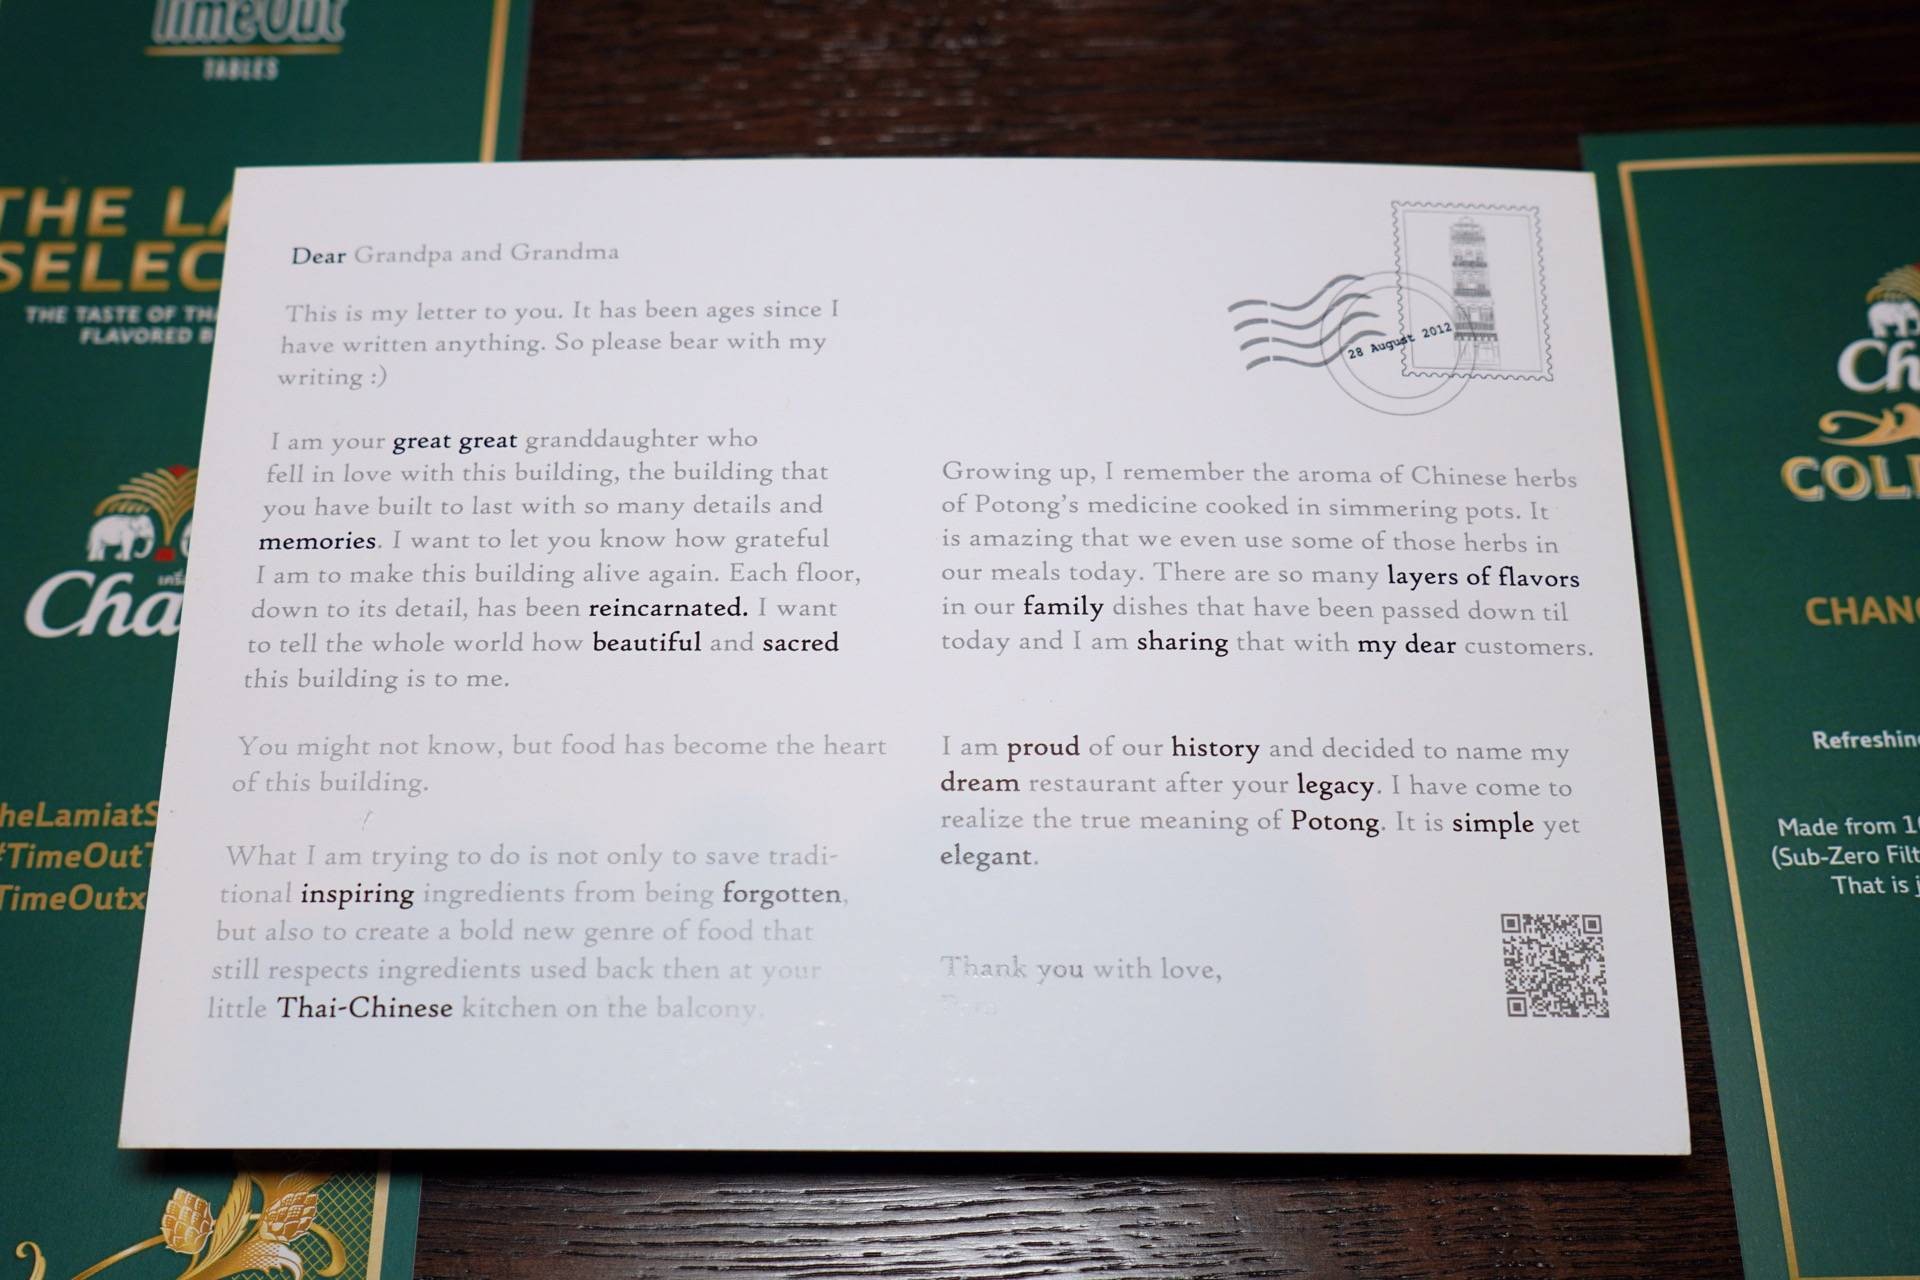 TimeOut
TABLES
THE LA
SELEC
THE TASTE OF THA
FLAVORED B
Cha
heLamiatS
#TimeOutT
TimeOutx
Dear Grandpa and Grandma
This is my letter to you. It has been ages since I
have written anything. So please bear with my
writing :)
I am your great great granddaughter who
fell in love with this building, the building that
you have built to last with so many details and
memories. I want to let you know how grateful
I am to make this building alive again. Each floor,
down to its detail, has been reincarnated. I want
to tell the whole world how beautiful and sacred
this building is to me.
You might not know, but food has become the heart
of this building.
What I am trying to do is not only to save tradi-
tional inspiring ingredients from being forgotten,
but also to create a bold new genre of food that
still respects ingredients used back then at your
little Thai-Chinese kitchen on the balcony.
28 August 2012
Growing up, I remember the aroma of Chinese herbs
of Potong's medicine cooked in simmering pots. It
is amazing that we even use some of those herbs in
our meals today. There are so many layers of flavors
in our family dishes that have been passed down til
today and I am sharing that with my dear customers.
I am proud of our history and decided to name my
dream restaurant after your legacy. I have come to
realize the true meaning of Potong. It is simple yet
elegant.
Thank you with love,
Ch
COL
CHANG
Refreshin
Made from 1
(Sub-Zero Filt
That is j